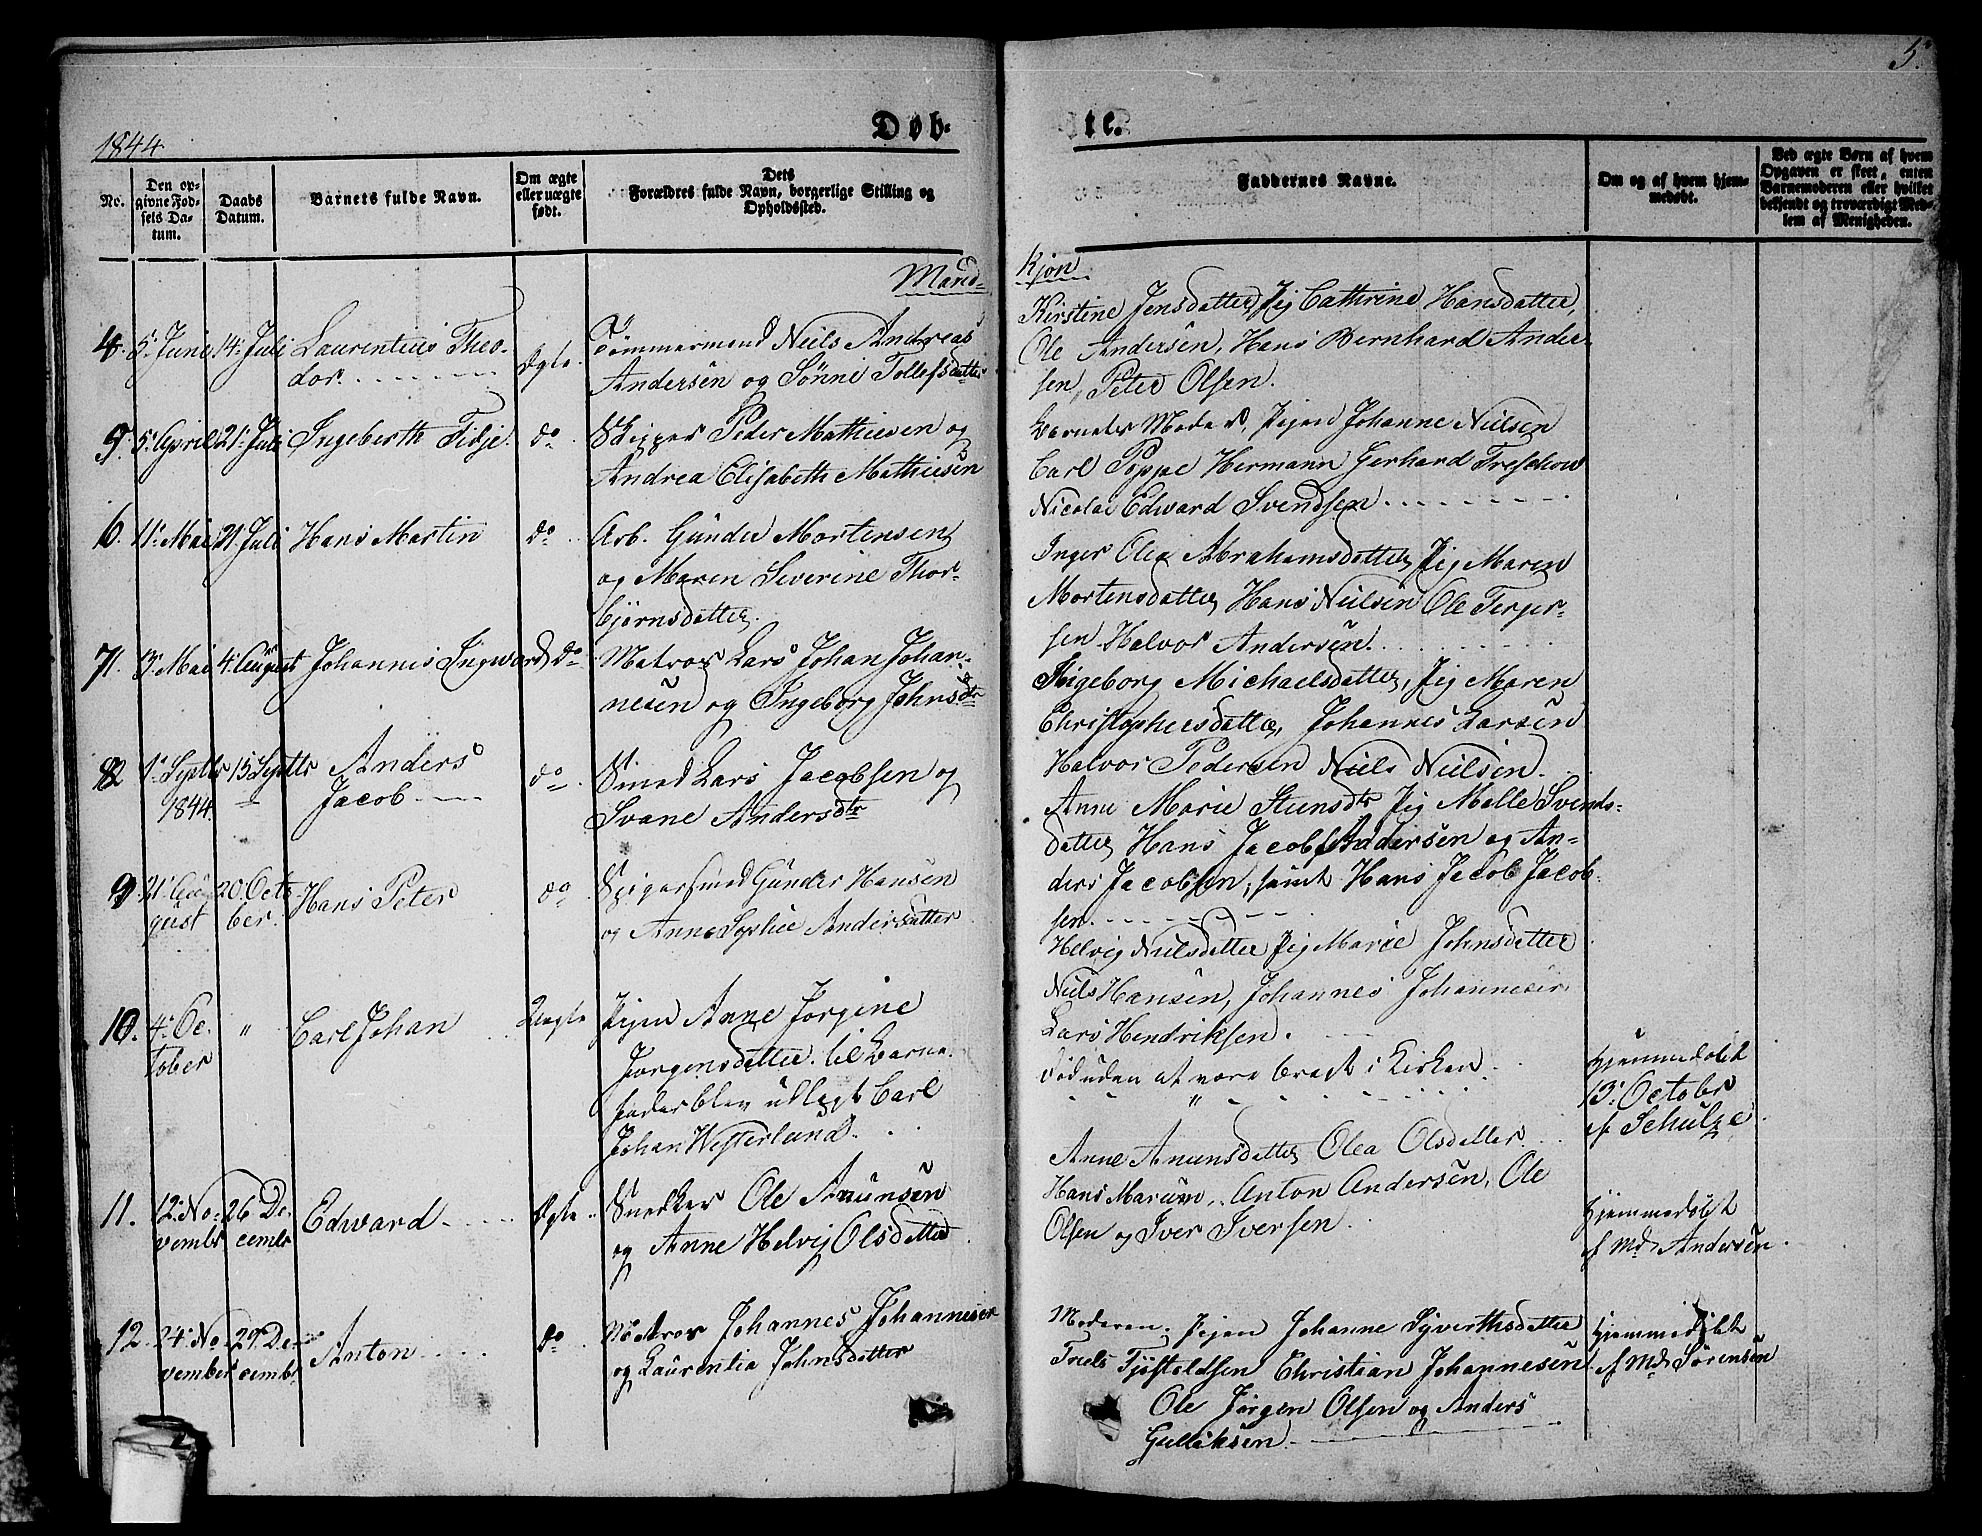 5.
1844
Døb-
te.
No.
Den op-
givne Fød-
sels Da-
tum.
Daabs
Datum.
Barnets fulde Navn.
Om ægte
eller uægte
født.
Dets
Forældres fulde Navn, borgerlige Stilling og
Opholdssted.
Faddernes Navne.
Om og af hvem hjem-
medøbt.
Ved ægte Børn af hvem
Opgaven er skeet, enten
Barnemoderen eller hvilket
bekjendt og troværdigt Med-
lem af Menigheden.
Mand-
Kjøn
4. 5. Juni 14. Juli Laurentius Theo-
dor.
Ægte
Tømmermand Niels Andreas
Andersen og Sønni Tollefsdatter
Kirstine Jensdatter, Pig Cathrine Hansdatter,
Ole Andersen, Hans Bernhard Ander-
sen, Peter Olsen.
5. 5. April 21. Juli Ingeberth Fidje. do
Skipper Peder Mathiesen og
Andrea Elisabeth Mathiesen
Barnets Moder, Pigen Johanne Nielsen
Carl Poppe Hermann Gerhard Treschow
Nicolai Edward Svendsen
6. 11. Mai 21. Juli Hans Martin do
Arb. Gunder Mortensen
og Maren Severine Thor-
bjørnsdatter.
Inger Olea Abrahamsdatter, Pig Maren
Mortensdatter Hans Nielsen Ole Terjer-
sen Halvor Andersen.
7. 13. Mai 4. August Johannes Ingward, do
Matros Lars Johan Johan-
nesen og Ingeborg Johnsdtr
Ingeborg Michaelsdatter, Pig Maren
Christophersdatter, Johannes Larsen
Halvor Pedersen Niels Nielsen.
8 1. Septbr 15 Septbr Anders
1844. Jacob
do
Smed Lars Jacobsen og
Svane Andersdtr
Anne Marie Steensdtr Pig Malle Svends-
datter Hans Jacob Andersen og An-
ders Jacobsen, samt Hans Jacob Jacob-
sen.
9 21. Au- 20. Octo-
gust ber. Hans Peter do
Spigersmed Gunder Hansen
og Anne Sophie Andersdatter
Helvig Nielsdatter Pig Marie Johnsdatter
Niels Hansen, Johannes Johannesen
Lars Hendriksen.
10. 4. Oc-
tober " Carl Johan Uægte
Pigen Anne Jørgine
Jørgensdatter. til Barne-
fader blev udlagt Carl
Johan Westerlund.
Død uden at være bragt i Kirken.
"
Hjemmedøbt
13. October
af Schulze
11. 12. No- 26. De-
vembr cembr Edward Ægte
Snedker Ole Anunsen
og Anne Helvig Olsdatter
Anne Anunsdatter Olea Olsdatter
Hans , Anton Andersen, Ole
Olsen og Iver Iversen.
Hjemmedøbt
af Md Andersen.
12. 24. No- 29. De-
vember cembr Anton do
Matros Johannes Johannesen
og Laurentia Johnsdatter
Moderen. Pigen Johanne Syverthsdatter
Truls Tjøstoldsen Christian Johannesen
Ole Jørgen Olsen og Anders
Gulliksen
Hjemmedøbt
af Md Sørensen